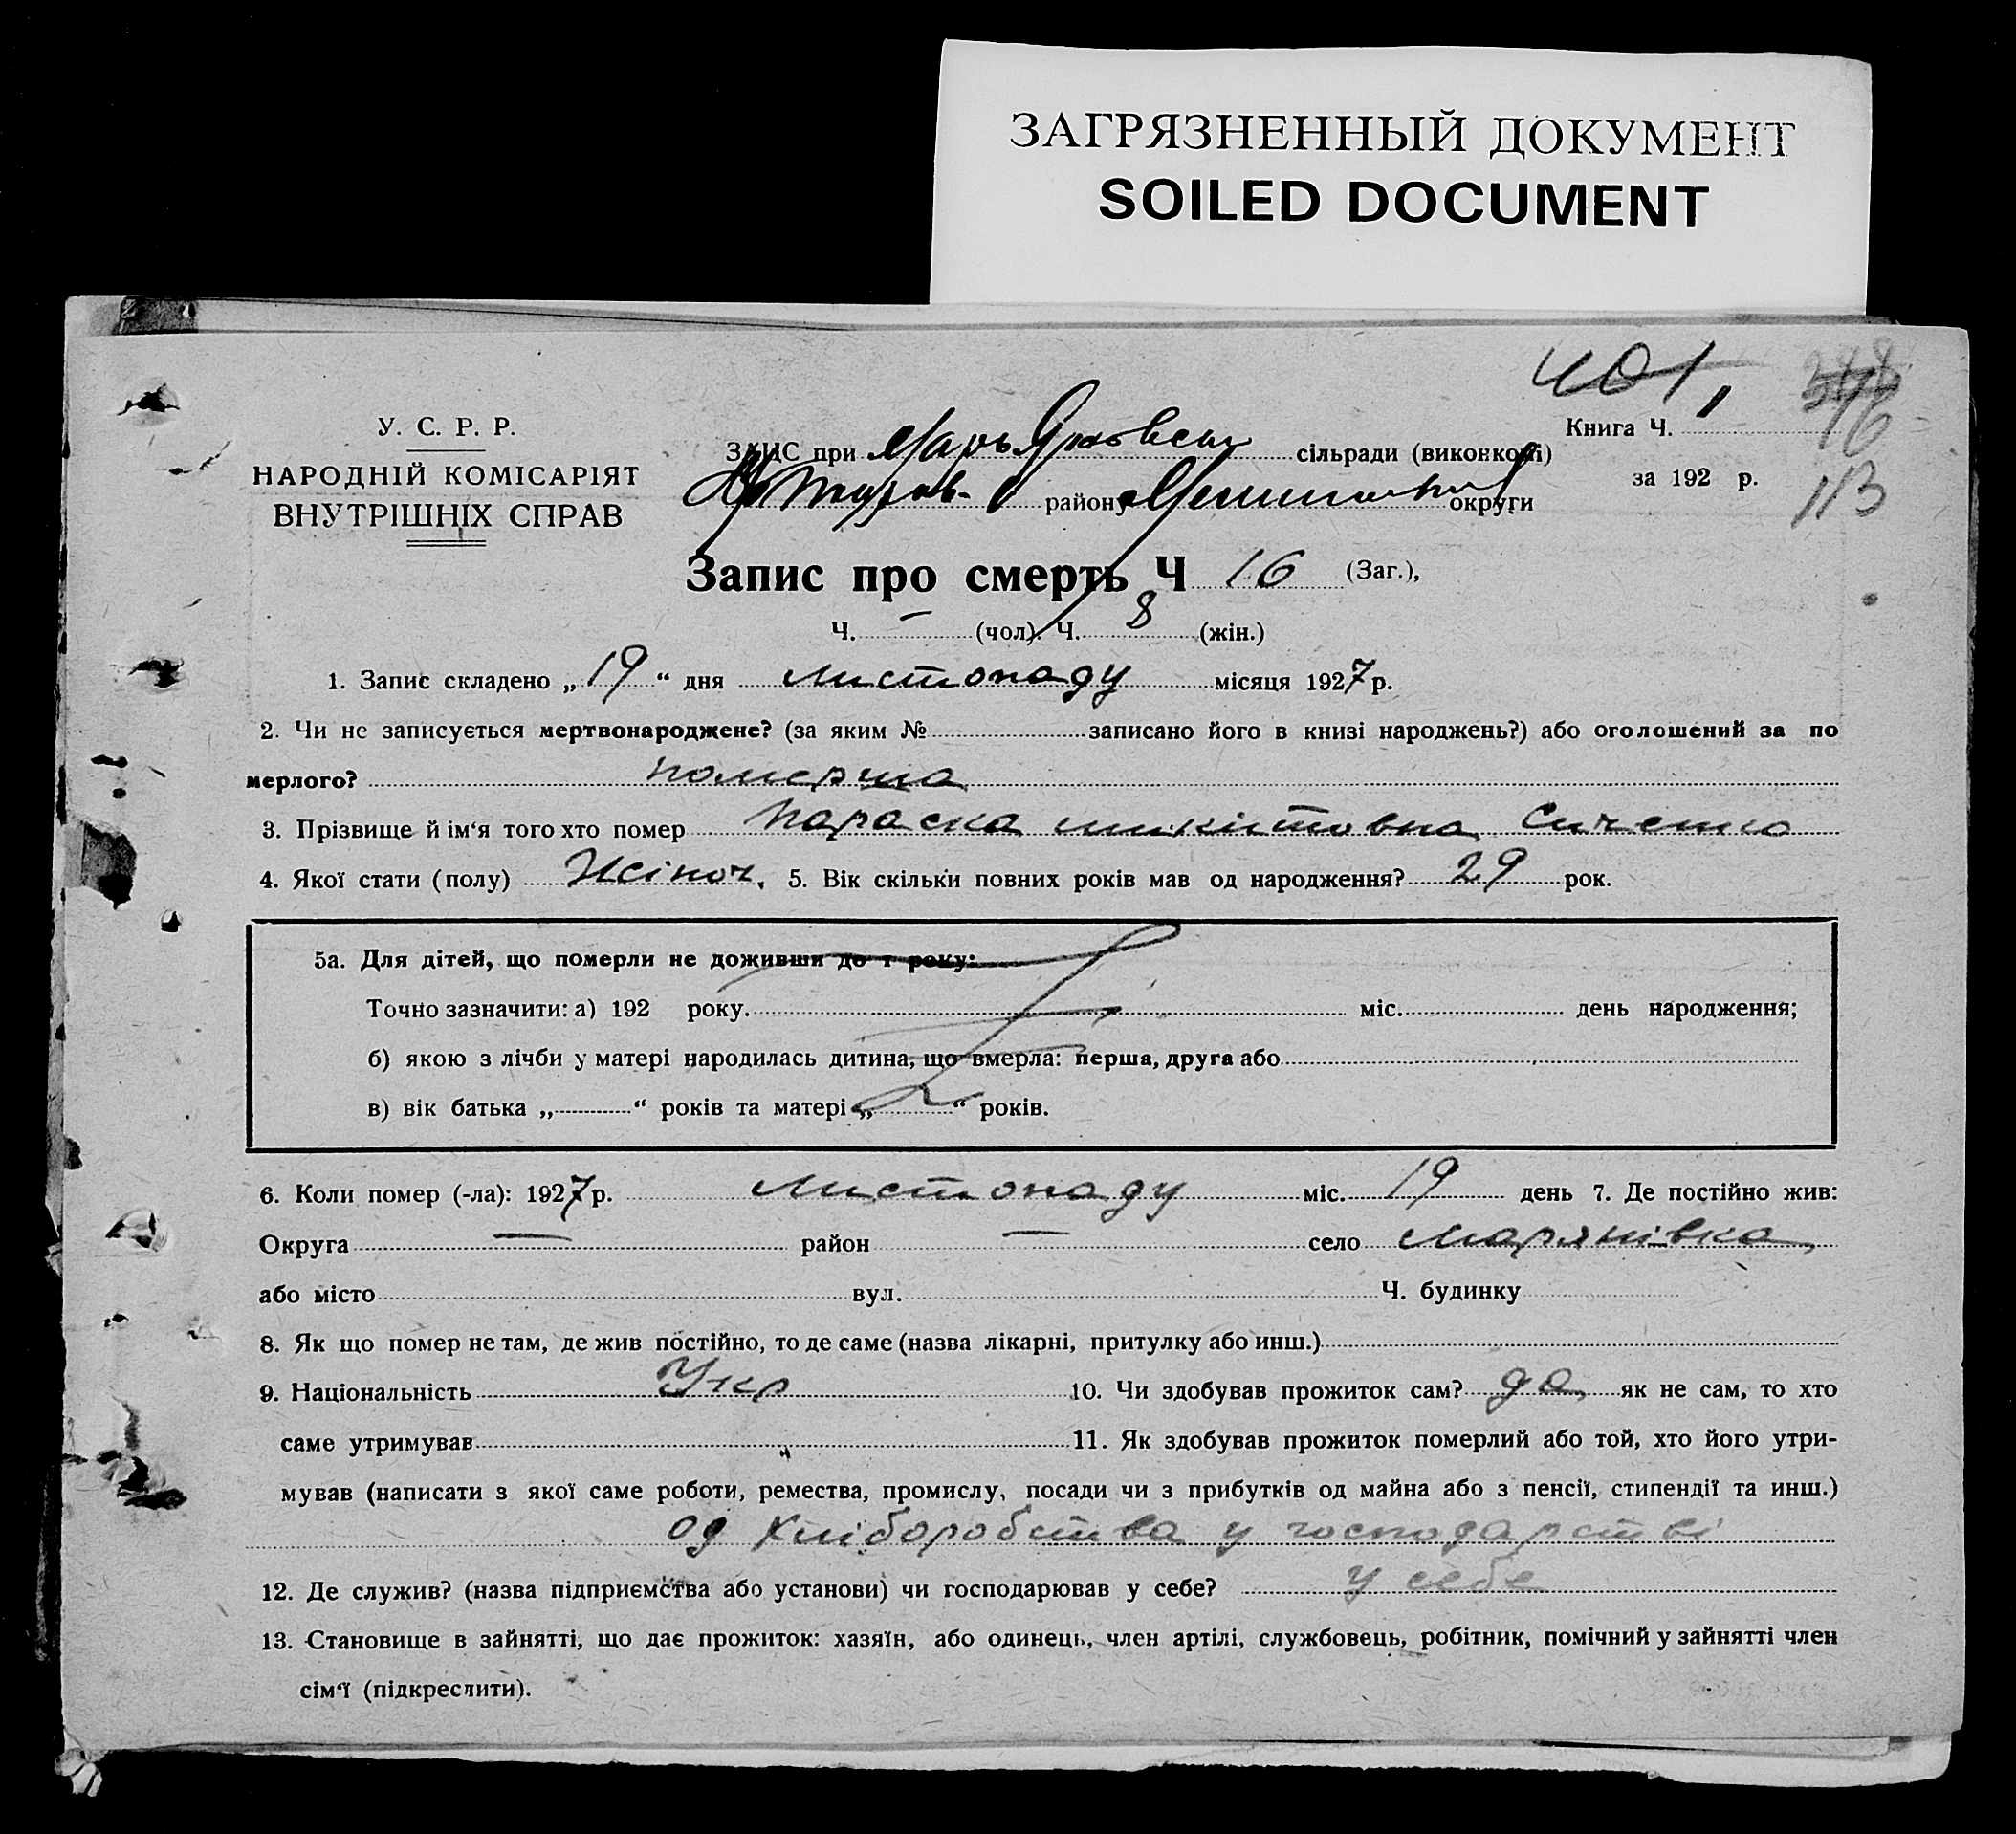 ЗАГРЯЗНЕННЫЙ ДОКУМЕНТ
SOILED DOCUMENT
401,
У. С. Р. Р.
НАРОДНІЙ КОМІСАРІЯТ
ВНУТРІШНІХ СПРАВ
Книга Ч.
за 192 р.
113
ЗАЦС при сільради (виконкомі)
району округи
Запис про смерть Ч 16 (Заг.),
Ч. — (чол). Ч. 8 (жін.)
1. Запис складено „19“ дня листопаду місяця 1927 р.
2. Чи не записується мертвонароджене? (за яким № записано його в книзі народжень?) або оголошений за по
мерлого? померша
3. Прізвище й ім‘я того хто помер Параска микітовна Сиченко
4. Якої стати (полу) Жіноч. 5. Вік скільки повних років мав од народження? 29 рок.
5а. Для дітей, що померли не доживши до 1 року:
Точно зазначити: а) 192 року. міс. день народження;
б) якою з лічби у матері народилась дитина, що вмерла: перша, друга або
в) вік батька „ “ років та матері „ “ років.
6. Коли помер (-ла): 1927 р. листопаду міс. 19 день 7. Де постійно жив:
Округа — район — село Марянівка
або місто вул. Ч. будинку
8. Як що помер не там, де жив постійно, то де саме (назва лікарні, притулку або инш.)
9. Національність Укр 10. Чи здобував прожиток сам? да як не сам, то хто
саме утримував " 11. Як здобував прожиток померлий або той, хто його утри-
мував (написати з якої саме роботи, ремества, промислу, посади чи з прибутків од майна або з пенсії, стипендії та инш.)
од хліборобства у господарстві
12. Де служив? (назва підприємства або установи) чи господарював у себе? у себе
13. Становище в зайнятті, що дає прожиток: хазяїн, або одинець, член артілі, службовець, робітник, помічний у зайнятті член
сім‘ї (підкреслити).